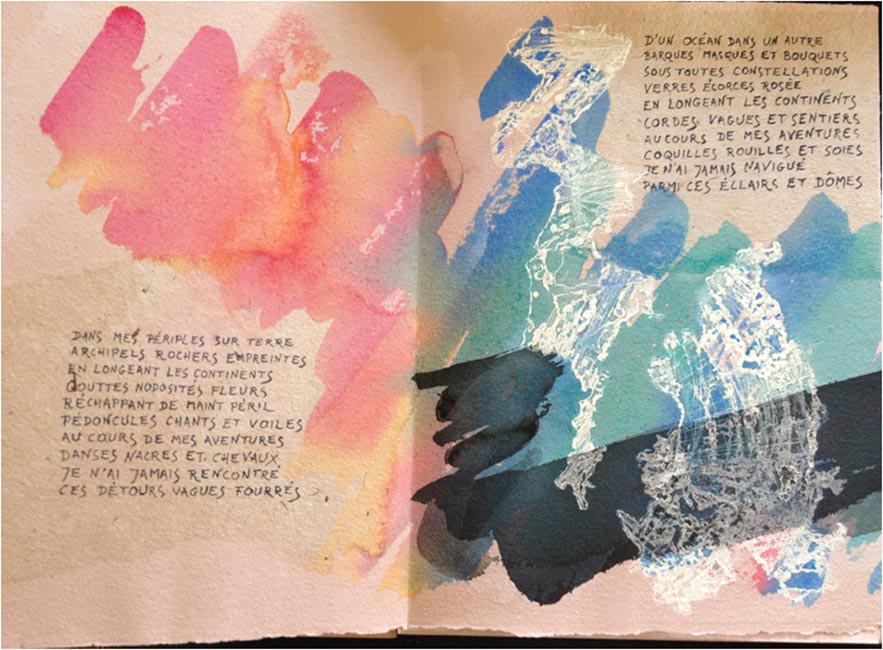 DANS MES PÉRIPLES SUR TERRE
ARCHIPELS ROCHERS EMPREINTES
EN LONGEANT LES CONTINENTS
GOUTTES NODOSITÉS FLEURS
RÉCHAPPANT DE MAINT PÉRIL
PÉDONCULES CHANTS ET VOILES
AU COURS DE MES AVENTURES
DANSES NACRES ET CHEVAUX
JE N'AI JAMAIS RENCONTRÉ
CES DÉTOURS VAGUES FOURRÉS
D'UN OCÉAN DANS UN AUTRE
BARQUES MASQUES ET BOUQUETS
SOUS TOUTES CONSTELLATIONS
VERRES ÉCORCES ROSÉE
EN LONGEANT LES CONTINENTS
CORDES VAGUES ET SENTIERS
AU COURS DE MES AVENTURES
COQUILLES ROUILLES ET SOIES
JE N'AI JAMAIS NAVIGUÉ
PARMI CES ÉCLAIRS ET DÔMES